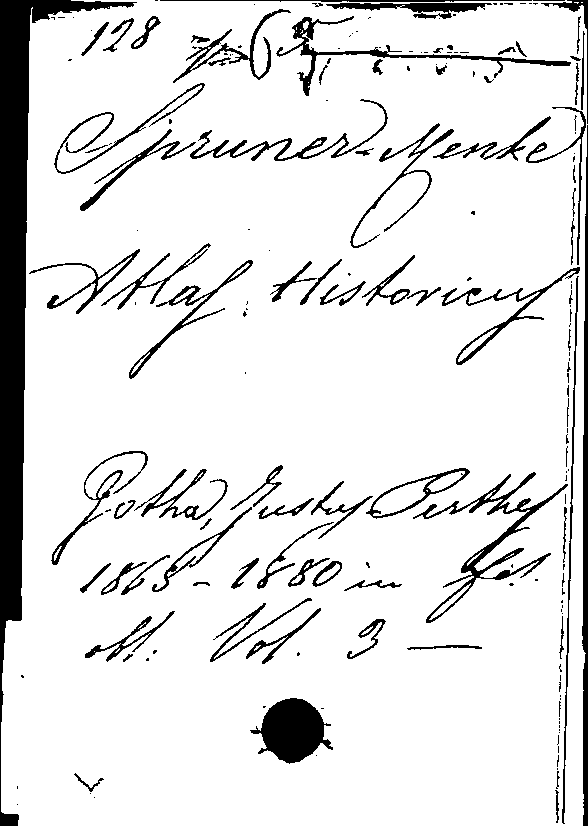 128
Spruner-Menke
Atlas Historicus
Gotha, Justus Perthes
1865-1880 in fol.
obl. Vol. 3 —